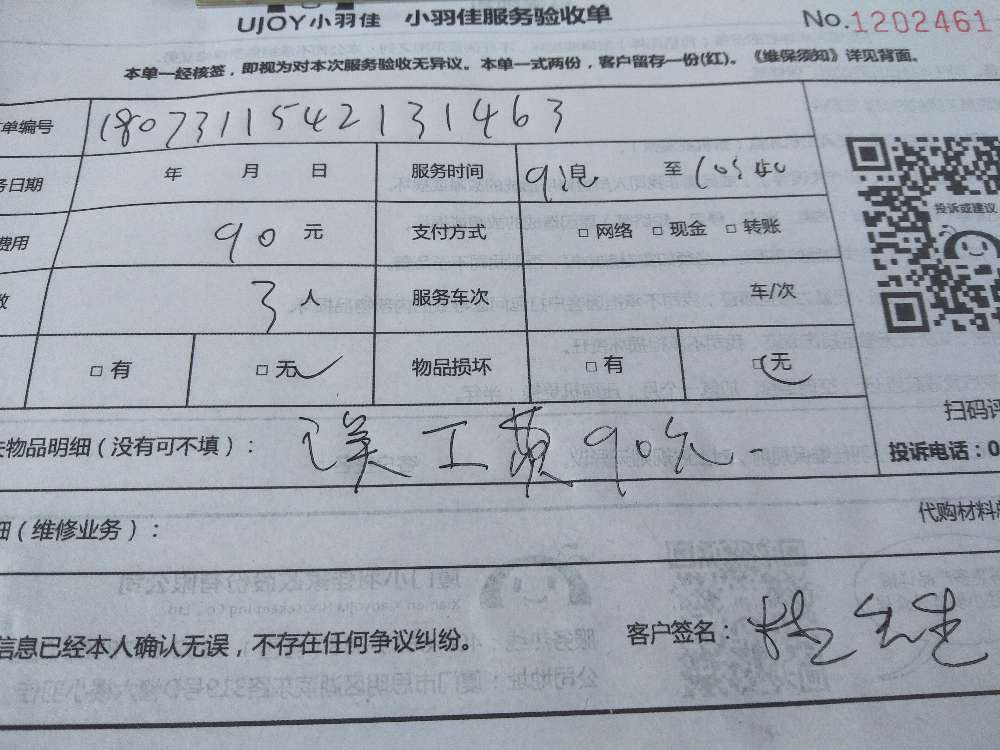 UJOY小羽佳 小羽佳服务验收单 No.1202461
本单一经核签，即视为对本次服务验收无异议。本单一式两份，客户留存一份(红)。《维保须知》详见背面。
单编号 1807311542131463
务日期 年 月 日 服务时间 至
费用 90 元 支付方式 □ 网络 □ 现金 □ 转账
投诉或建议
数 3 人 服务车次 车/次
□ 有 □ 无 物品损坏 □ 有 □ 无
扫码评
物品明细（没有可不填）： 误工费90元
投诉电话：0
细（维修业务）： 代购材料
信息已经本人确认无误，不存在任何争议纠纷。 客户签名：